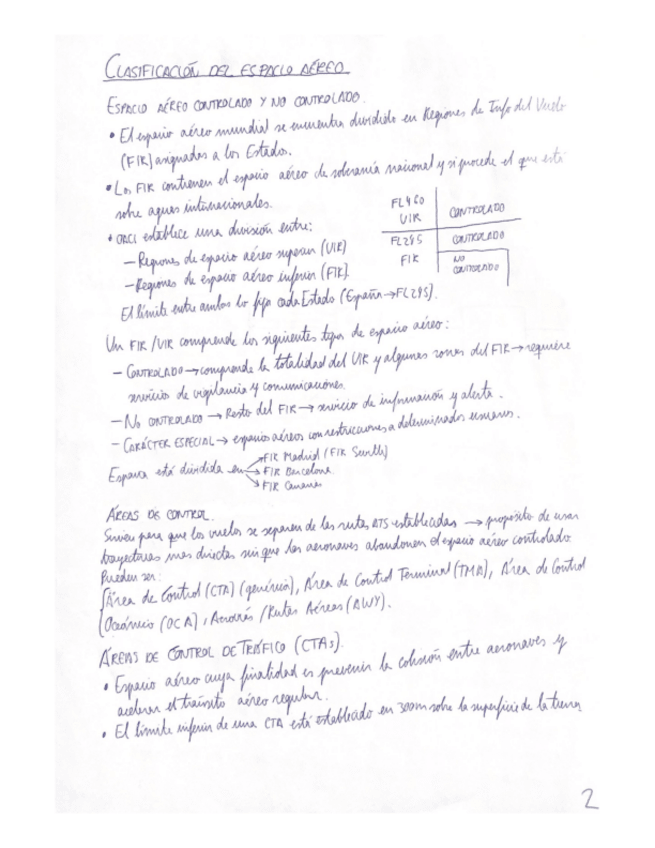 CLASIFICACIÓN DEL ESPACIO AÉREO
ESPACIO AÉREO CONTROLADO Y NO CONTROLADO.
• El espacio aéreo mundial se encuentra dividido en Regiones de Info del Vuelo
(FIR) asignados a los Estados.
• Los FIR contienen el espacio aéreo de soberanía nacional y si procede el que está
sobre aguas internacionales.
• OACI establece una división entre:
– Regiones de espacio aéreo superior (UIR)
– Regiones de espacio aéreo inferior (FIR).
El límite entre ambos lo fija cada Estado (España → FL295).
FL460
UIR
CONTROLADO
FL245
CONTROLADO
FIR
NO
CONTROLADO
Un FIR/UIR comprende los siguientes tipos de espacio aéreo:
– CONTROLADO → comprende la totalidad del UIR y algunas zonas del FIR → requiere
servicios de vigilancia y comunicaciones.
– NO CONTROLADO → Resto del FIR → servicio de información y alerta.
– CARÁCTER ESPECIAL → espacios aéreos con restricciones a determinados usuarios.
España está dividida en → FIR Madrid (FIR Sevilla)
→ FIR Barcelona
→ FIR Canarias
ÁREAS DE CONTROL.
Sirven para que los vuelos se separen de las rutas ATS establecidas → propósito de usar
trayectorias mas directas sin que las aeronaves abandonen el espacio aéreo controlado
Pueden ser:
Área de Control (CTA) (genérico), Área de Control Terminal (TMA), Área de Control
Oceánico (OCA), Aerovías/Rutas Aéreas (AWY).
ÁREAS DE CONTROL DE TRÁFICO (CTAs).
• Espacio aéreo cuya finalidad es prevenir la colisión entre aeronaves y
acelerar el tránsito aéreo regular.
• El límite inferior de una CTA está establecido en 300m sobre la superficie de la tierra
2